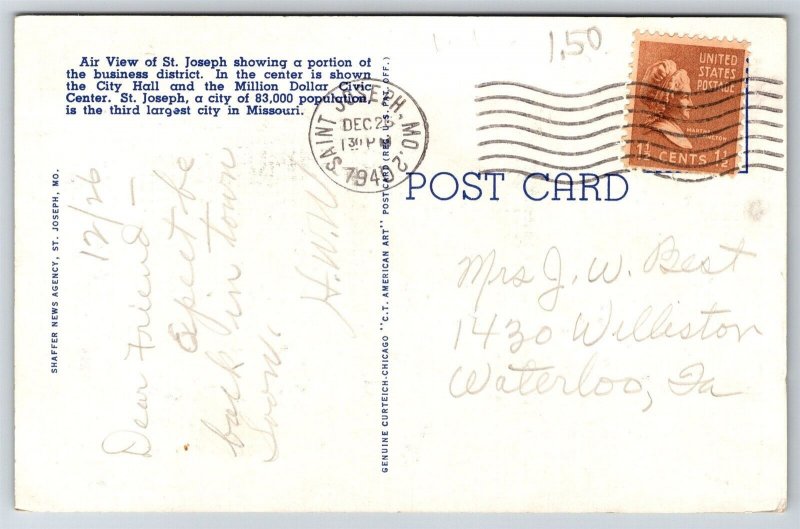 1.50
Air View of St. Joseph showing a portion of
the business district. In the center is shown
the City Hall and the Million Dollar Civic
Center. St. Joseph, a city of 83,000 population,
is the third largest city in Missouri.
SAINT JOSEPH, MO. 2
DEC 26
130 PM
1949
UNITED
STATES
POSTAGE
MARTHA WASHINGTON
1½ CENTS 1½
POST CARD
12/26
Dear Friend –
Expect be
back in town
soon.
H.W.W.
Mrs J. W. Best
1430 Williston
Waterloo, Ia
SHAFFER NEWS AGENCY, ST. JOSEPH, MO.
GENUINE CURTEICH-CHICAGO "C.T. AMERICAN ART" POST CARD (REG. U.S. PAT. OFF.)